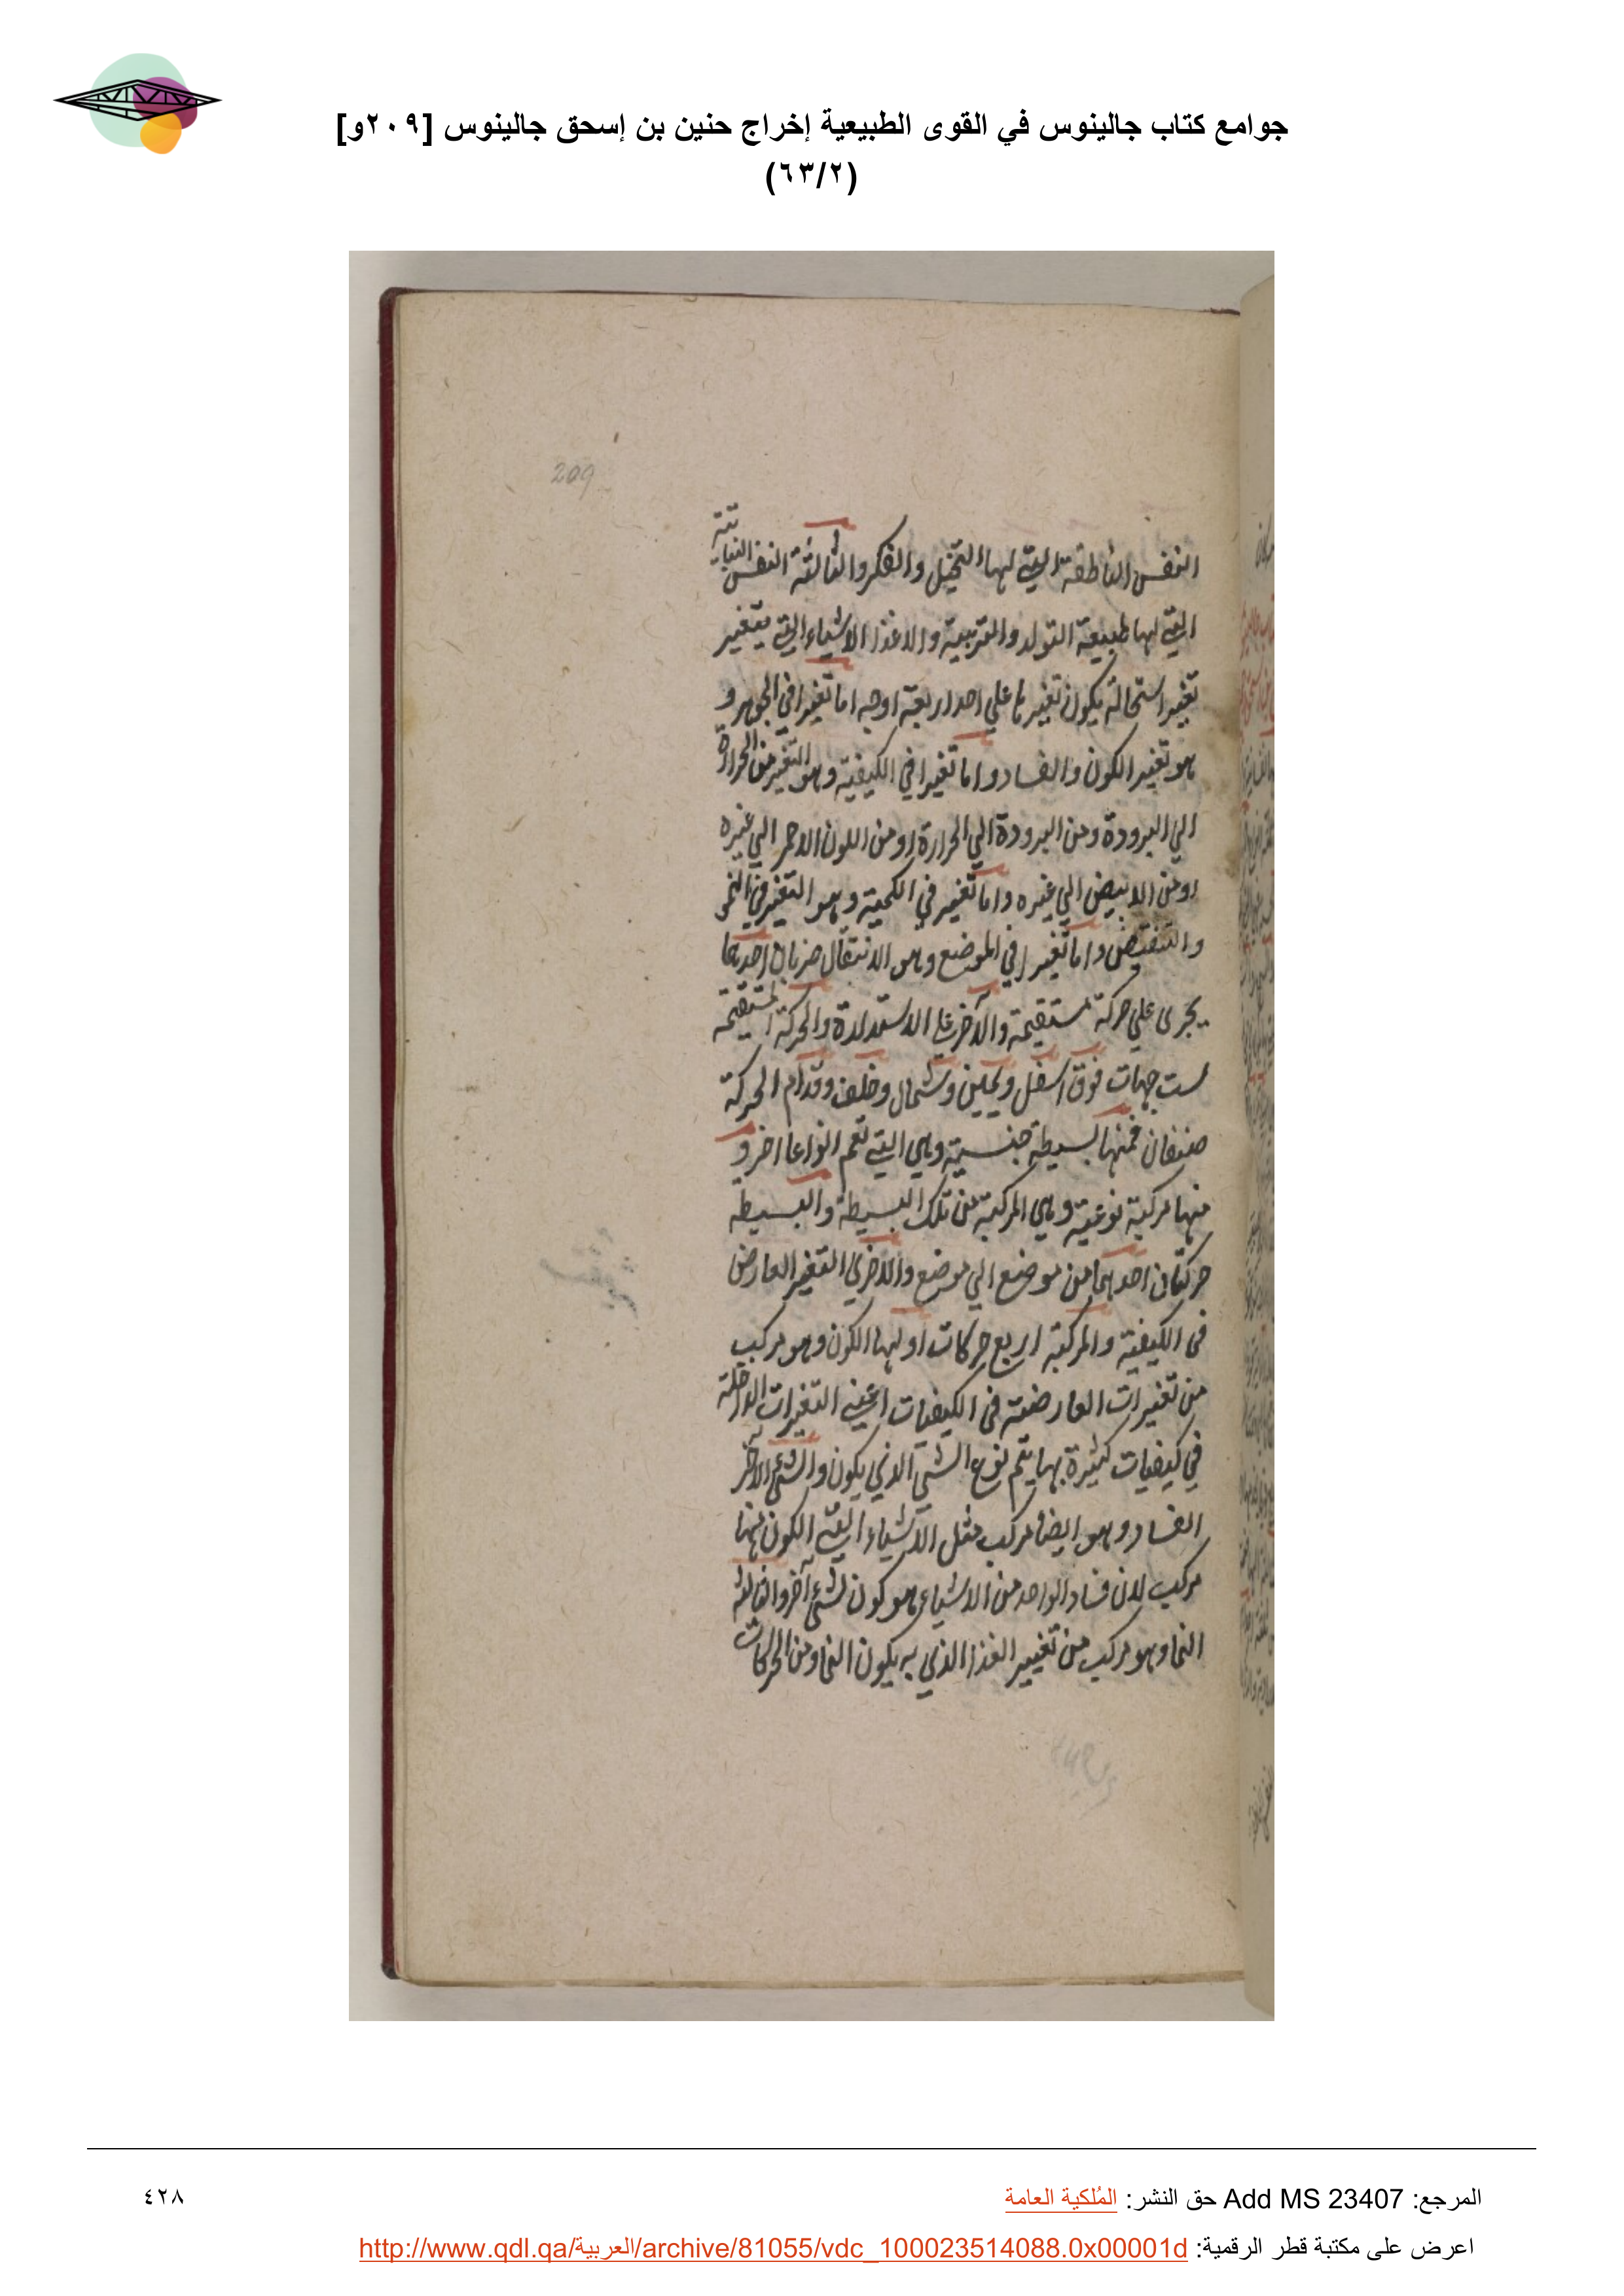 جوامع كتاب جالينوس في القوى الطبيعية إخراج حنين بن إسحق جالينوس [٢٠٩و]
(٦٣/٢)
209
النفس الناطقة التي لها التخيل والفكر والثالثة النفس النباتية
التي لها طبيعة التولد والتربية والاغذا الاشياء التي يتغير
تغيير استحالة يكون تغييرها علي احد اربعة اوجه اما تغيرا في الجوهر و
هو تغيير الكون والفساد واما تغيرا في الكيفية وهو التغير من الحرارة
الي البرودة ومن البرودة الي الحرارة او من اللون الاحمر الي غيره
او من الابيض الي غيره واما تغير في الكمية وهو التغير في النمو
والتنقيض واما تغيرا في الموضع وهو الانتقال ضربان احدهما
يجرى علي حركة مستقيمة والآخر علي الاستدارة والحركة المستقيمة
ست جهات فوق اسفل ويمين وشمال وخلف وقدام الحركة
صنفان فمنها بسيطة جنسية وهي التي تعم انواعا اخر و
منها مركبة نوعية وهي المركبة من تلك البسيطة والبسيطة
حركتان احدهما من موضع الي موضع والاخري التغير العارض
فى الكيفية والمركبة اربع حركات اولها الكون وهو مركب
من تغيرات العارضة فى الكيفيات اعني التغيرات الداخلة
في كيفيات كثيرة بها يتم نوع الشي الذي يكون والشئ الآخر
الفساد وهو ايضا مركب مثل الاشياء التي الكون منها
مركب لان فساد الواحد من الاشياء هو كون لشئ آخر والثالثة
النما وهو مركب من تغيير الغذا الذي به يكون النما ومن الحركات
المرجع: Add MS 23407 حق النشر: المُلكية العامة
٤٢٨
اعرض على مكتبة قطر الرقمية: http://www.qdl.qa/العربية/archive/81055/vdc_100023514088.0x00001d